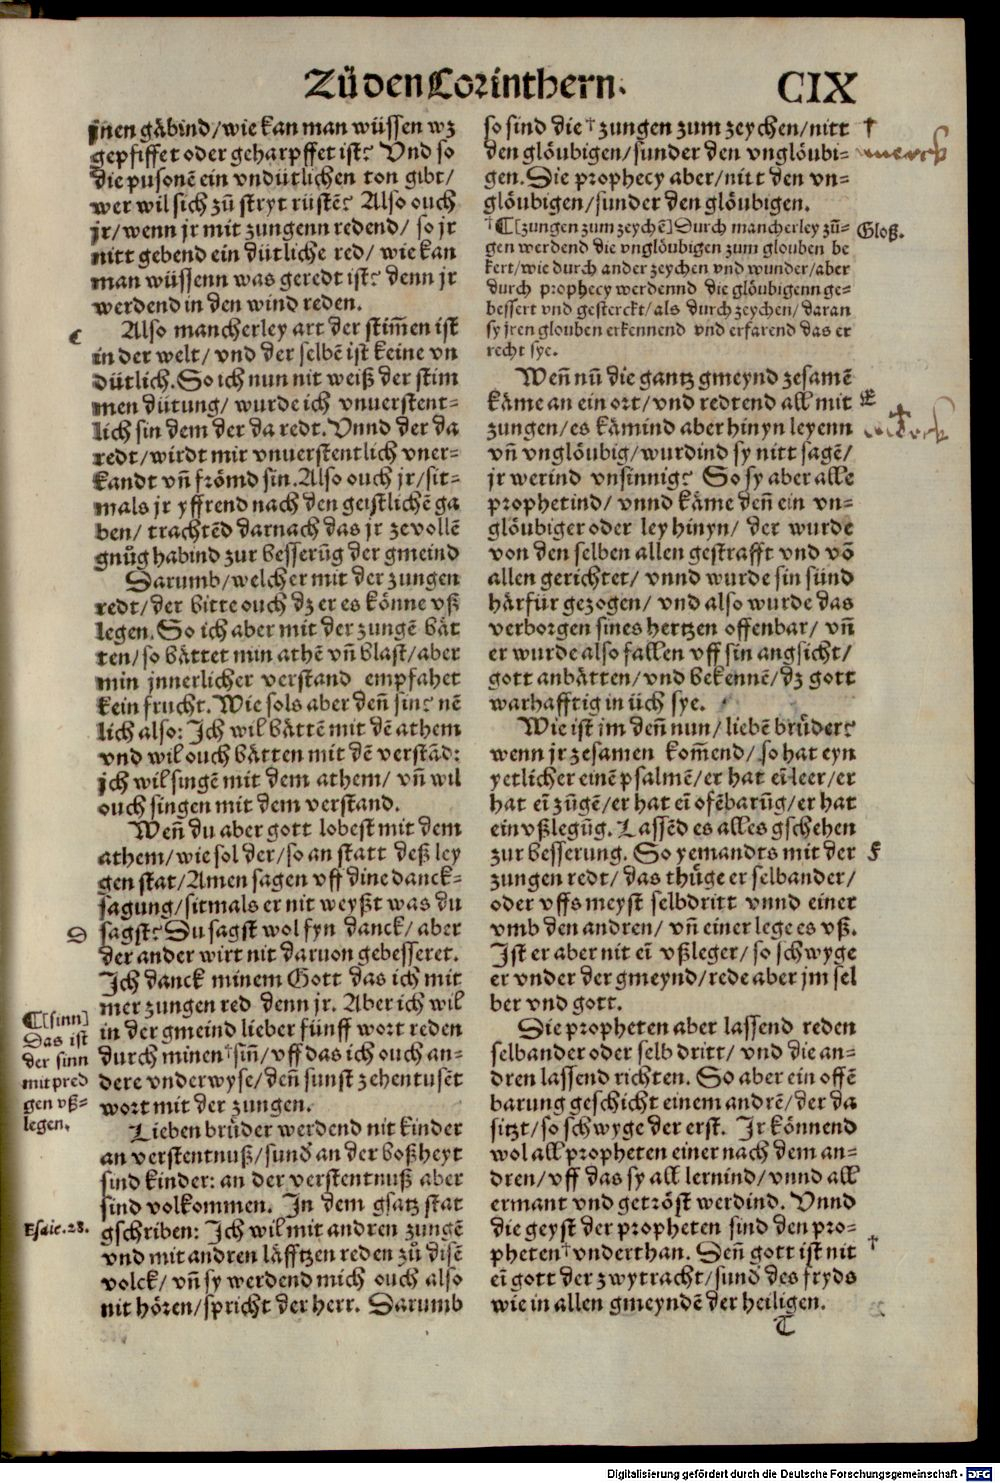 Zů den Corinthern.
CIX
jnen gäbind/wie kan man wüssen wz
gepfiffet oder geharpffet ist? Vnd so
die pusonē ein vndütlichen ton gibt/
wer wil sich zů stryt rüstē? Also ouch
jr/wenn jr mit zungenn redend/ so jr
nitt gebend ein dütliche red/ wie kan
man wüssenn was geredt ist? denn jr
werdend in den wind reden.
C
Also mancherley art der stim̄en ist
in der welt/ vnd der selbē ist keine vn
dütlich. So ich nun nit weiß der stim
men dütung/ wurde ich vnuerstent-
lich sin dem der da redt. Vnnd der da
redt/wirdt mir vnuerstentlich vner-
kandt vn̄ frömd sin. Also ouch jr/sit-
mals jr yffrend nach den geistlichē ga
ben/ trachtēd darnach das jr ze vollē
gnůg habind zur besserūg der gmeind
Darumb/welcher mit der zungen
redt/der bitte ouch dz er es könne vß
legen. So ich aber mit der zungē bät
ten/so bättet min athē vn̄ blast/aber
min jnnerlicher verstand empfahet
kein frucht. Wie sols aber den̄ sin? nē
lich also: Ich wil bättē mit dē athem
vnd wil ouch bätten mit dē verstād:
jch wil singē mit dem athem/ vn̄ wil
ouch singen mit dem verstand.
Wen̄ du aber gott lobest mit dem
athem/wie sol der/so an statt deß ley
gen stat/Amen sagen vff dine danck-
sagung/sitmals er nit weyßt was du
D
sagst? Du sagst wol fyn danck/ aber
der ander wirt nit daruon gebesseret.
Ich danck minem Gott das ich mit
mer zungen red denn jr. Aber ich wil
in der gmeind lieber fünff wort reden
durch minen †sin̄/vff das ich ouch an-
dere vnderwyse/den̄ sunst zehentusēt
wort mit der zungen.
¶[sinn]
Das ist
der sinn
mit pred
gen vß-
legen.
Lieben brůder werdend nit kinder
an verstentnuß/sund̄ an der boßheyt
sind kinder: an der verstentnuß aber
sind volkommen. In dem gsatz stat
Esaie.28.
gschriben: Ich wil mit andren zungē
vnd mit andren läfftzen reden zů disē
volck/ vn̄ sy werdend mich ouch also
nit hören/spricht der herr. Darumb
so sind die †zungen zum zeychen/nitt
†
den glöubigen/sunder den vnglöubi-
gen. Die prophecy aber/nitt den vn-
glöubigen/sunder den glöubigen.
†¶[zungen zum zeychē] Durch mancherley zū-
Gloß.
gen werdend die vnglöubigen zum glouben be
kert/wie durch ander zeychen vnd wunder/aber
durch prophecy werdennd die glöubigenn ge-
bessert vnd gesterckt/als durch zeychen/ daran
sy jren glouben erkennend vnd erfarend das er
recht sye.
Wen̄ nū die gantz gmeynd zesamē
E
käme an ein ort/vnd redtend all mit
zungen/es kämind aber hinyn leyenn
vn̄ vnglöubig/wurdind sy nitt sagē/
jr werind vnsinnig? So sy aber alle
prophetind/ vnnd käme den̄ ein vn-
glöubiger oder ley hinyn/ der wurde
von den selben allen gestrafft vnd vō
allen gerichtet/ vnnd wurde sin sünd
härfür gezogen/ vnd also wurde das
verborgen sines hertzen offenbar/ vn̄
er wurde also fallen vff sin angsicht/
gott anbätten/vnd bekennē/dz gott
warhafftig in üch sye.
Wie ist im den̄ nun/ liebē brůder?
wenn jr zesamen kom̄end/so hat eyn
yetlicher einē psalmē/er hat eī leer/er
hat eī zūgē/er hat eī ofēbarūg/er hat
ein vßlegūg. Lassēd es alles gschehen
zur besserung. So yemandts mit der
F
zungen redt/das thůge er selbander/
oder vffs meyst selbdritt vnnd einer
vmb den andren/ vn̄ einer lege es vß.
Ist er aber nit eī vßleger/so schwyge
er vnder der gmeynd/rede aber jm sel
ber vnd gott.
Die propheten aber lassend reden
selbander oder selb dritt/ vnd die an-
dren lassend richten. So aber ein offē
barung geschicht einem andrē/der da
sitzt/so schwyge der erst. Ir könnend
wol all propheten einer nach dem an-
dren/vff das sy all lernind/vnnd all
ermant vnd getröst werdind. Vnnd
die geyst der propheten sind den pro-
pheten †vnderthan. Den̄ gott ist nit
†
eī gott der zwytracht/sund̄ des fryds
wie in allen gmeyndē der heiligen.
T
Digitalisierung gefördert durch die Deutsche Forschungsgemeinschaft - DFG